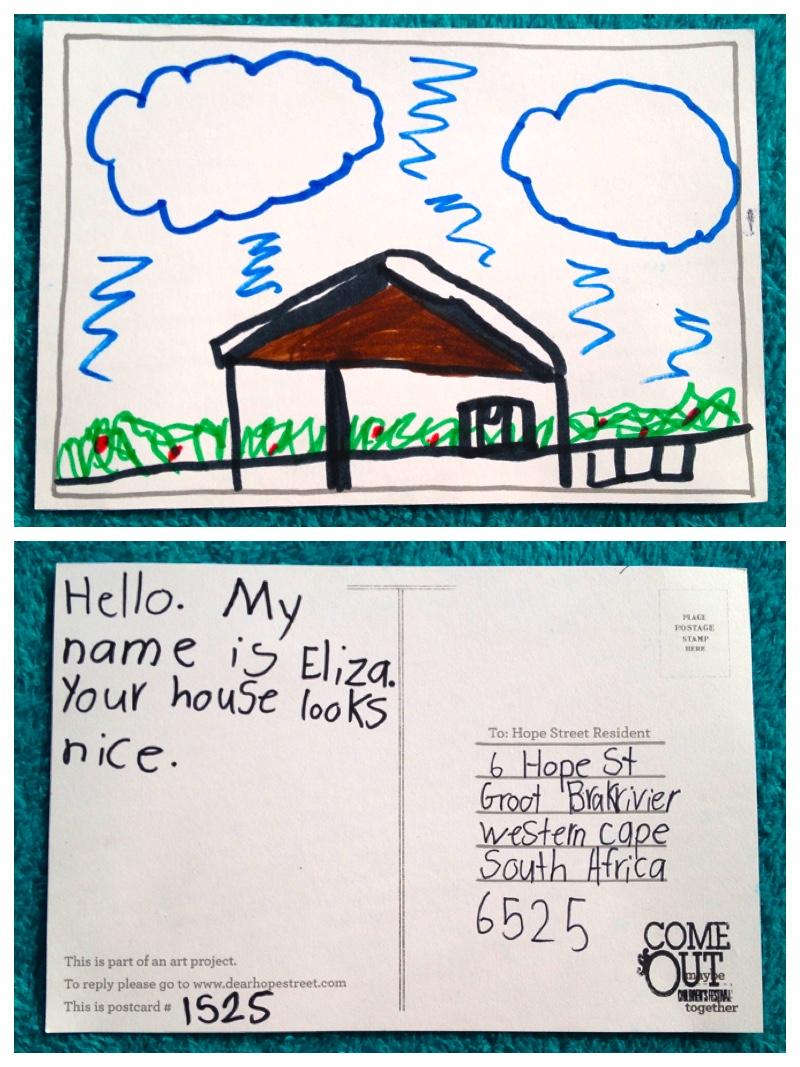 Hello. My
name is Eliza.
Your house looks
nice.
This is part of an art project.
To reply please go to www.dearhopestreet.com
This is postcard # 1525
PLACE
POSTAGE
STAMP
HERE
To: Hope Street Resident
6 Hope St
Groot Brakrivier
western cape
South Africa
6525
COME
OUT
maybe
CHILDREN'S FESTIVAL
together